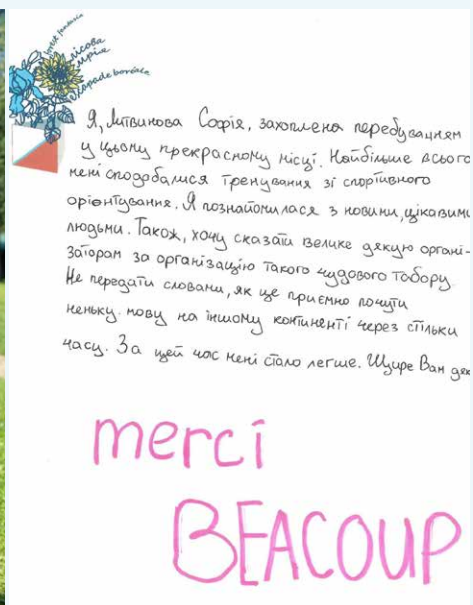 forest fantasia
лісова
мрія
escapade boréale
Я, Литвинова Софія, захоплена перебуванням
у цьому прекрасному місці. Найбільше всього
мені сподобалися тренування зі спортивного
орієнтування. Я познайомилася з новими, цікавими
людьми. Також, хочу сказати велике дякую органі-
заторам за організацію такого чудового табору.
Не передати словами, як це приємно почути
неньку мову на іншому континенті через стільки
часу. За цей час мені стало легше. Щире Вам дяк
merci
BEACOUP